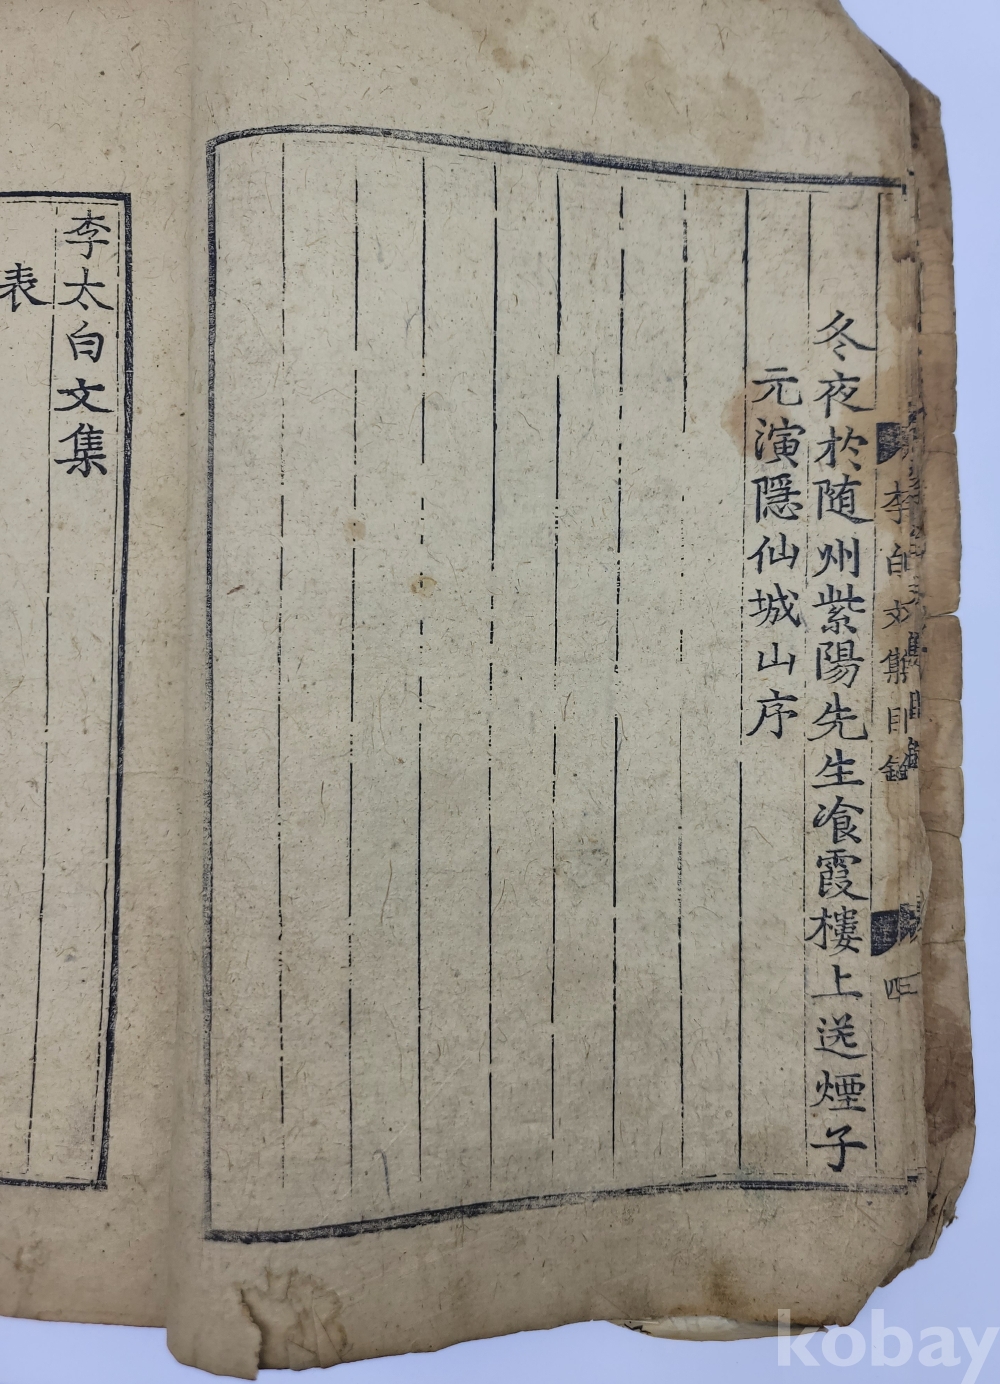 冬夜於随州紫陽先生飡霞樓上送煙子
元演隠仙城山序
李太白文集
表
李白文集目錄
四
kobay